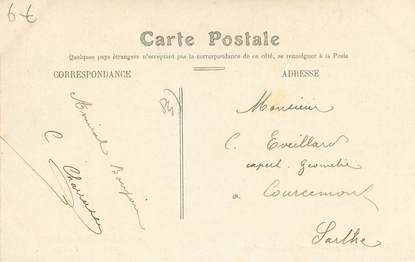 6€
Carte Postale
Quelques pays étrangers n'acceptant pas la correspondance de ce côté, se renseigner à la Poste
CORRESPONDANCE
ADRESSE
Amical Bonjour
C.
Monsieur
C. Eveillard
expert-Geometre
a Courcemont
Sarthe